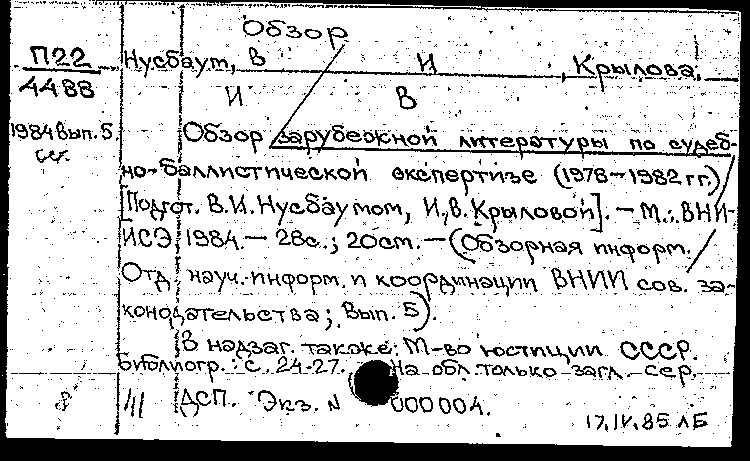 Обзор
П22
4488
Нусбаум, В И , Крылова,
И В
1984 вып. 5.
сч.
Обзор зарубежной литературы по судеб-
но-баллистической экспертизе (1978-1982 гг.)
[Подгот. В.И. Нусбаумом, И.В. Крыловой]. — М.: ВНИ-
ИСЭ, 1984. — 28с.; 20см. — (Обзорная информ.
Отд. науч. информ. и координации ВНИИ сов. за-
конодательства; Вып. 5).
В надзаг. также: М-во юстиции СССР.
Библиогр.: с. 24-27. На обл. только загл. сер.
ДСП. Экз. N 000004.
17.IV.85 ЛБ